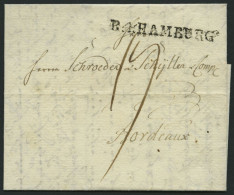 R.4.HAMBURG
Herrn Schroeder & Schÿller & Comp
19
Bordeaux